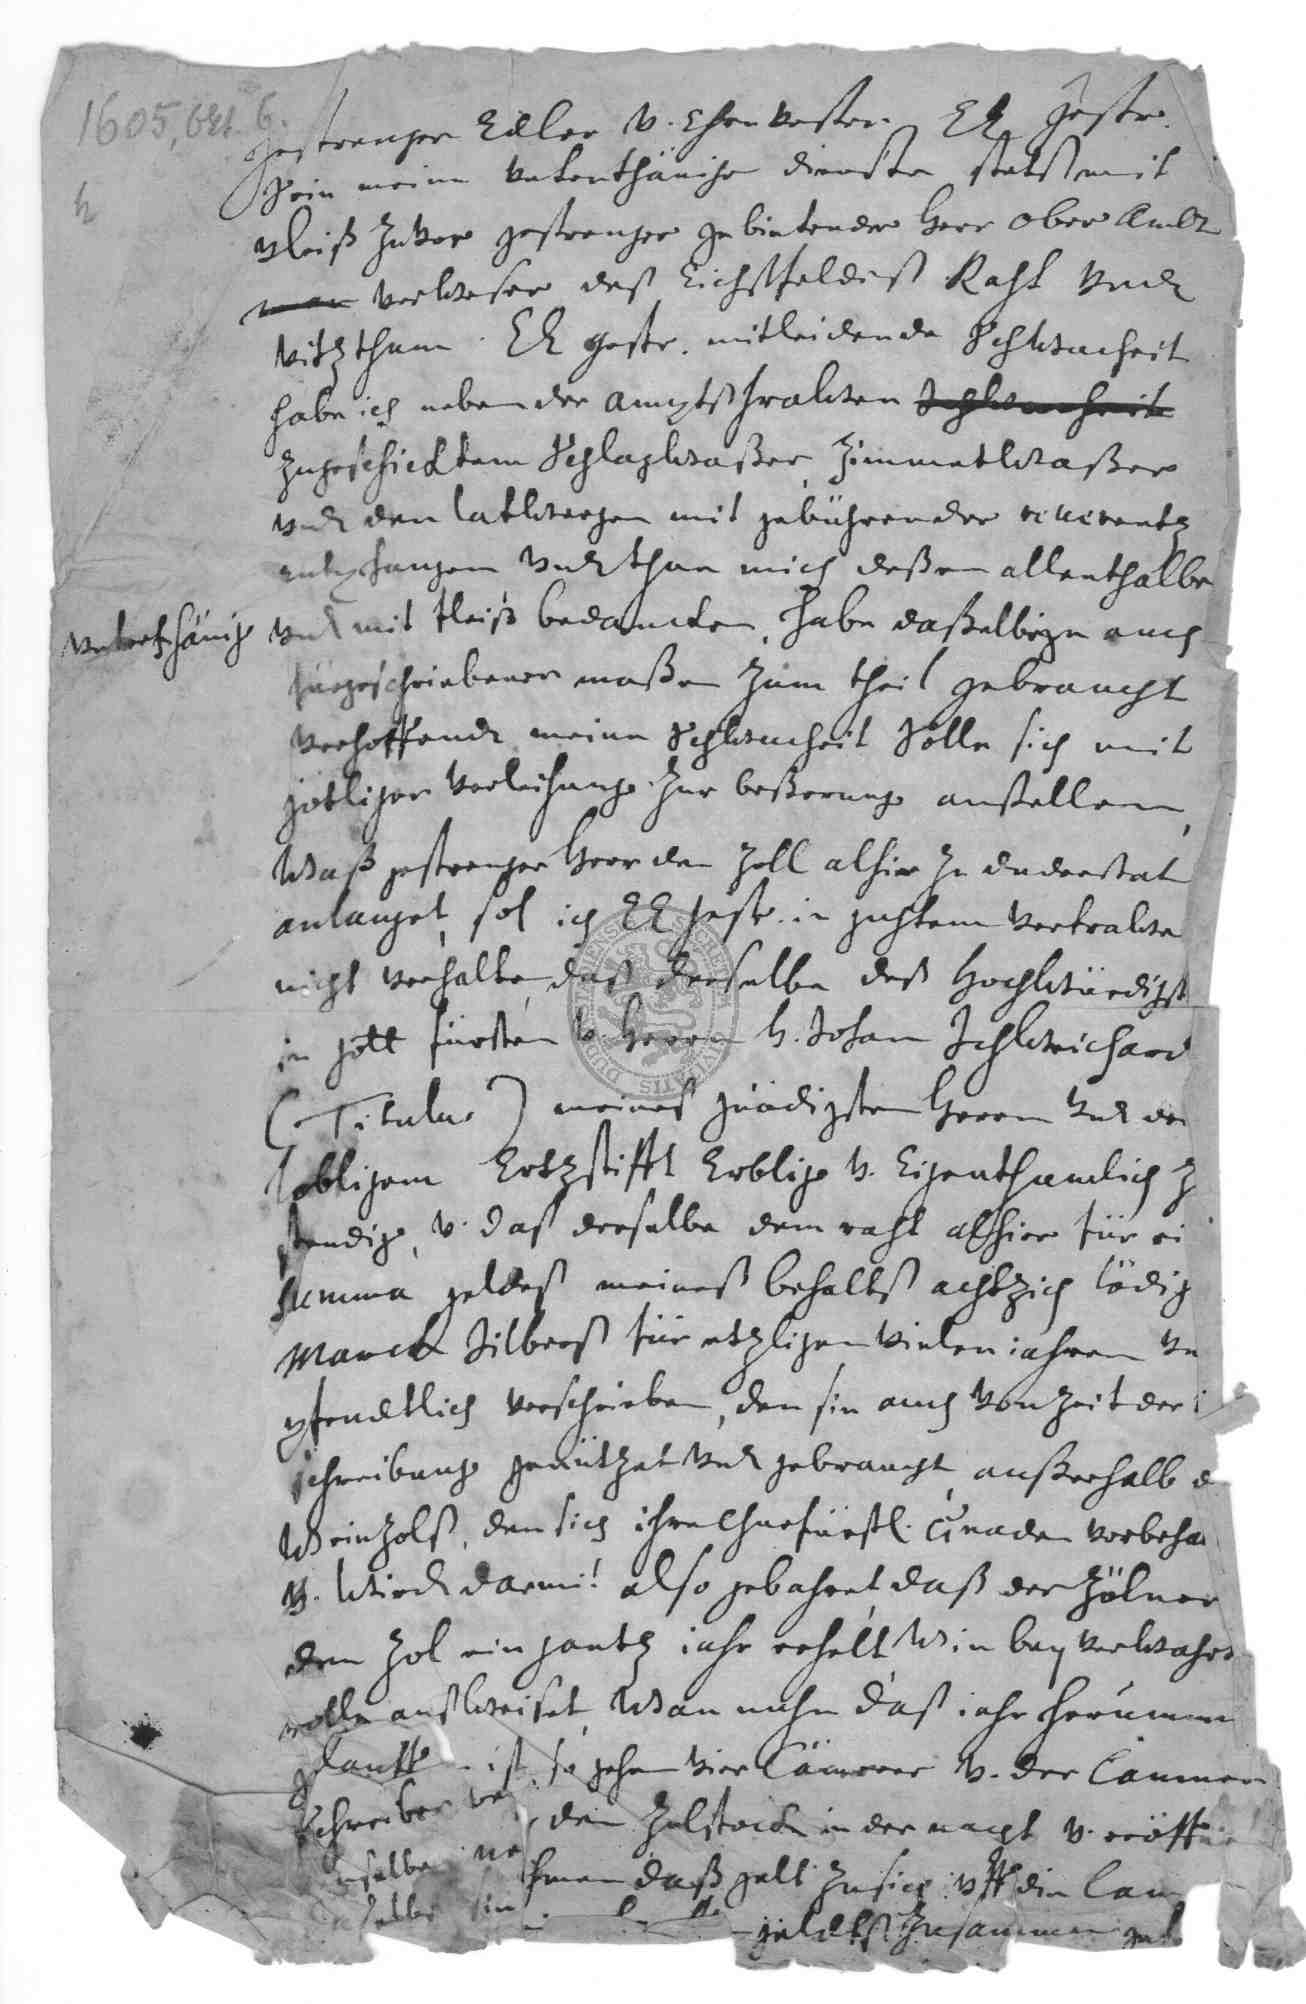 1605, Oct. 6.
Gestrenger Edler v. Ehrnvester. EE gestr.
sein meine unterthänige dienste stetß mit
vleiß zuvor gestrenger gebietender Herr Ober Ambt
verweser deß Eichßfeldeß Raht und
Vitzthum. EE gestr. mitleidende Schwacheit
habe ich neben der
zugeschicktem Schlagwaßer, Zimmetwaßer
und den latwergen mit gebührender reverentz
entpfangen und thue mich deßen allenthalbe
unterthänig
und mit fleiß bedancken, habe daßelbige auch
fürgeschriebener maßen zum theil gebraucht
verhoffende meine Schwacheit solle sich mit
götliger verleihunge zur beßerunge anstellen,
Waß gestrenger Herr den Zoll alhir zu duderstat
anlanget, sol ich EE gestr. in guhtem vertrawen
nicht verhalten, daß derselbe deß Hochwürdigst
in gott fürsten v. Herrn H. Johan Schweichard
(Titulus) meines gnädigsten Herrn und de
löbligem Ertzstifft Erblige v. Eigenthumlich z
stendige, v. daß derselbe dem raht alhier für ei
summa geldeß meineß behaltß achtzich lödig
Marck Silberß für etzligen vielen iahren vn
pfendtlich verschrieben, den sie auch von zeit der
schreibunge genützet und gebraucht, außerhalb d
Weinzolß, den sich ihre Churfürstl. Gnaden vorbeha
v. wird darmit also gebahret, daß der Zölner
den Zol ein gantz iahr erhelt
rolle außweiset, Wan nuhn daß iahr herümm
gelauffen ist, so gehen vier Cämerer v. der Cammer
schreiber den Zolstock in der nacht v. eröff
men daß gelt zu sich uff die Cam
geldtß zusammen
SOCIETATIS CIVITATIS DUD